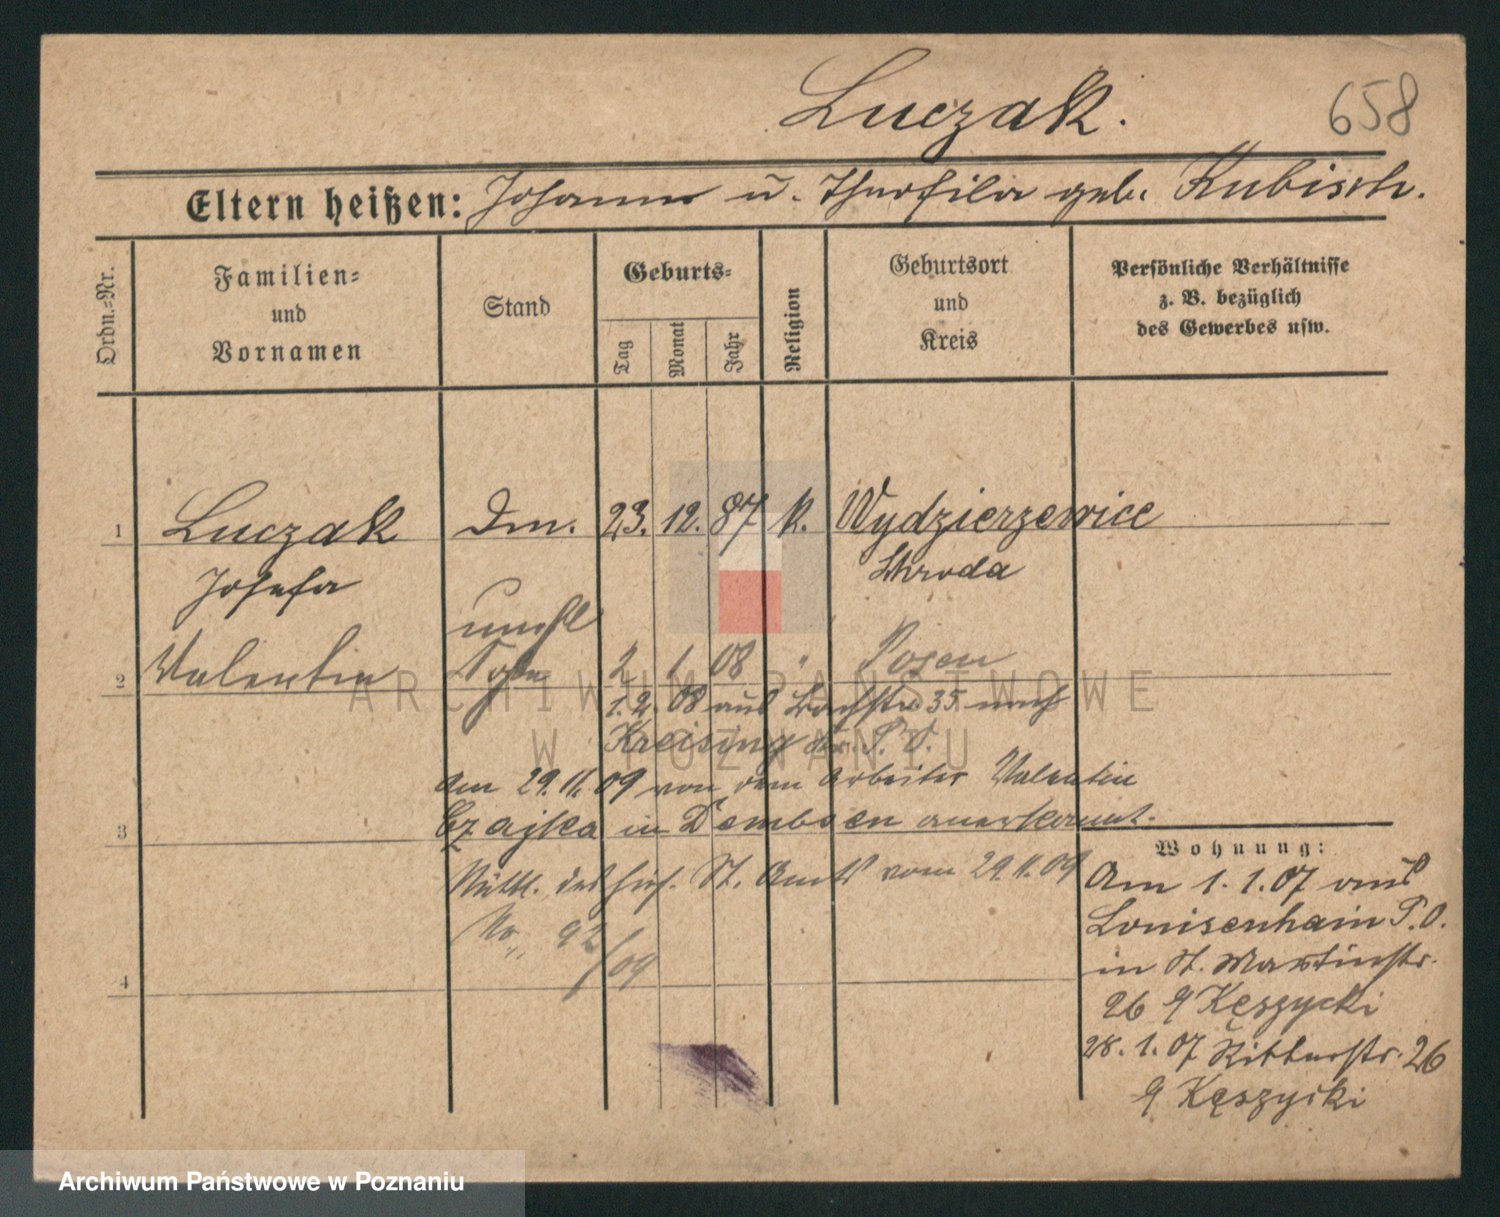 Luczak.
658
Eltern heißen: Johann u. Theofila geb. Kubisch.
Ordn.-Nr.
Familien-
und
Vornamen
Stand
Geburts-
Tag
Monat
Jahr
Religion
Geburtsort
und
Kreis
Persönliche Verhältnisse
z. B. bezüglich
des Gewerbes usw.
1 Luczak Dm. 23. 12. 87 k. Wydzierzewice
Josefa Schroda
unehl
2 Valentin Sohn 2 1 08 " Posen
1. 2. 08 aus Bachstr. 35 nach
Kreising Kr. P. O.
Am 29.11.09 von dem Arbeiter Valentin
3 Czajka in Dembsen anerkannt.
Mittl. des St. Amts vom 29.11.09
No. 92/09
4
Wohnung:
Am 1. 1. 07 aus
Louisenhain P. O.
in St. Martinstr.
26 Kęszycki
28. 1. 07 Ritterstr. 26
Kęszycki
ARCHIWUM PAŃSTWOWE
W POZNANIU
Archiwum Państwowe w Poznaniu